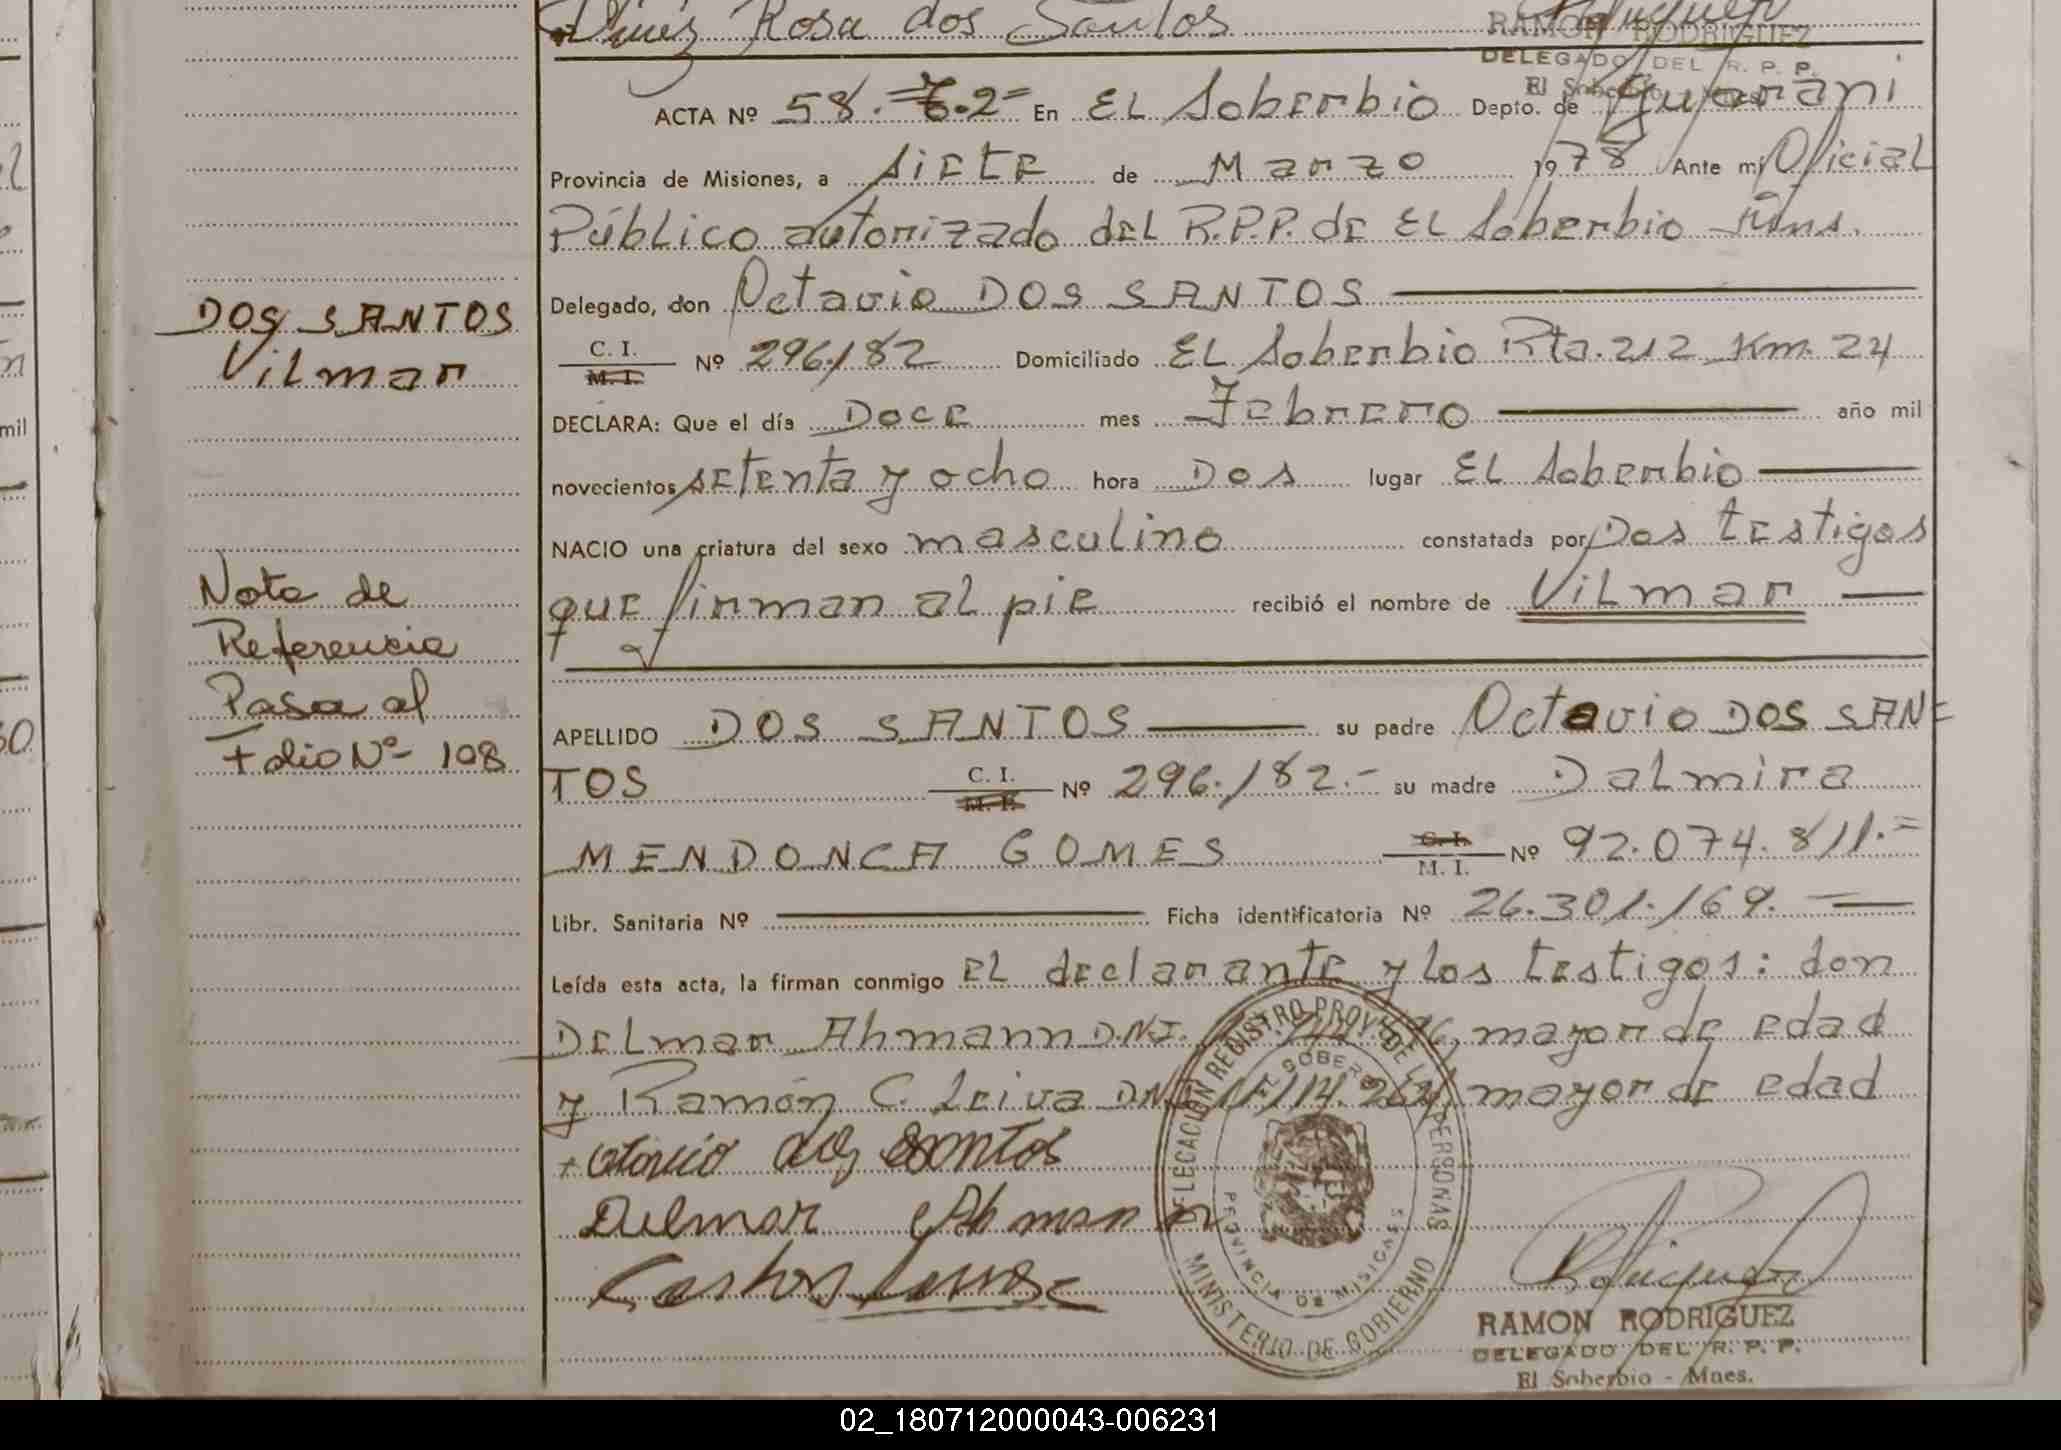 Rosa dos Santos
RAMON RODRIGUEZ
DELEGADO DEL R. P. P.
ACTA Nº 58. =T.2= En EL Soberbio Depto. de Guarani
Provincia de Misiones, a SiEtE de Marzo 1978 Ante mi Oficial
Público autorizado dEL R.P.P. dE EL Soberbio Mns.
DOS SANTOS
Delegado, don Octavio DOS SANTOS
Vilmar
C. I.
M. I.
Nº 296.182 Domiciliado EL Soberbio Rta. 212 Km. 24
DECLARA: Que el día DocE mes FebrEro año mil
novecientos sEtEnta y ocho hora Dos lugar EL SobErbio
NACIO una criatura del sexo masculino constatada por Dos tEstigos
Nota de
quE firman al piE recibió el nombre de ViLmar
Referencia
Pasa al
Folio Nº 108
APELLIDO DOS SANTOS su padre Octavio DOS SAN=
TOS C. I.
M. I.
Nº 296.182.- su madre Dalmira
MENDONCA GOMES C. I.
M. I.
Nº 92.074.811.=
Libr. Sanitaria Nº Ficha identificatoria Nº 26.301.169.
Leída esta acta, la firman conmigo EL dEclarantE y los tEstigos: don
DELmar Ahmann D.N.I. mayor dE Edad
y Ramón C. LEiva D.N.I. mayor dE Edad
dos santos
Delmar Ahmann
DELEGACION REGISTRO PROV. DE L PERSONAS
EL SOBERBIO
PROVINCIA DE MISIONES
MINISTERIO DE GOBIERNO
RAMON RODRIGUEZ
DELEGADO DEL R. P. P.
El Soberbio - Mnes.
02_180712000043-006231